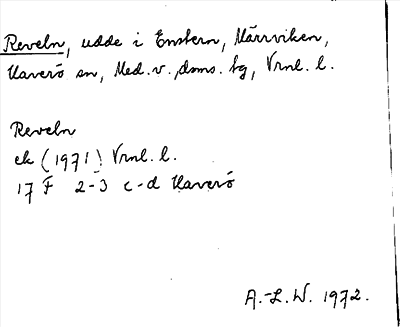 Reveln, udde i Enstern, Märrviken,
Haverö sn, Med. v. doms. tg, Vrnl. l.
Reveln
ek (1971) Vrnl. l.
17 F 2-3 c-d Haverö
A.-L. W. 1972.